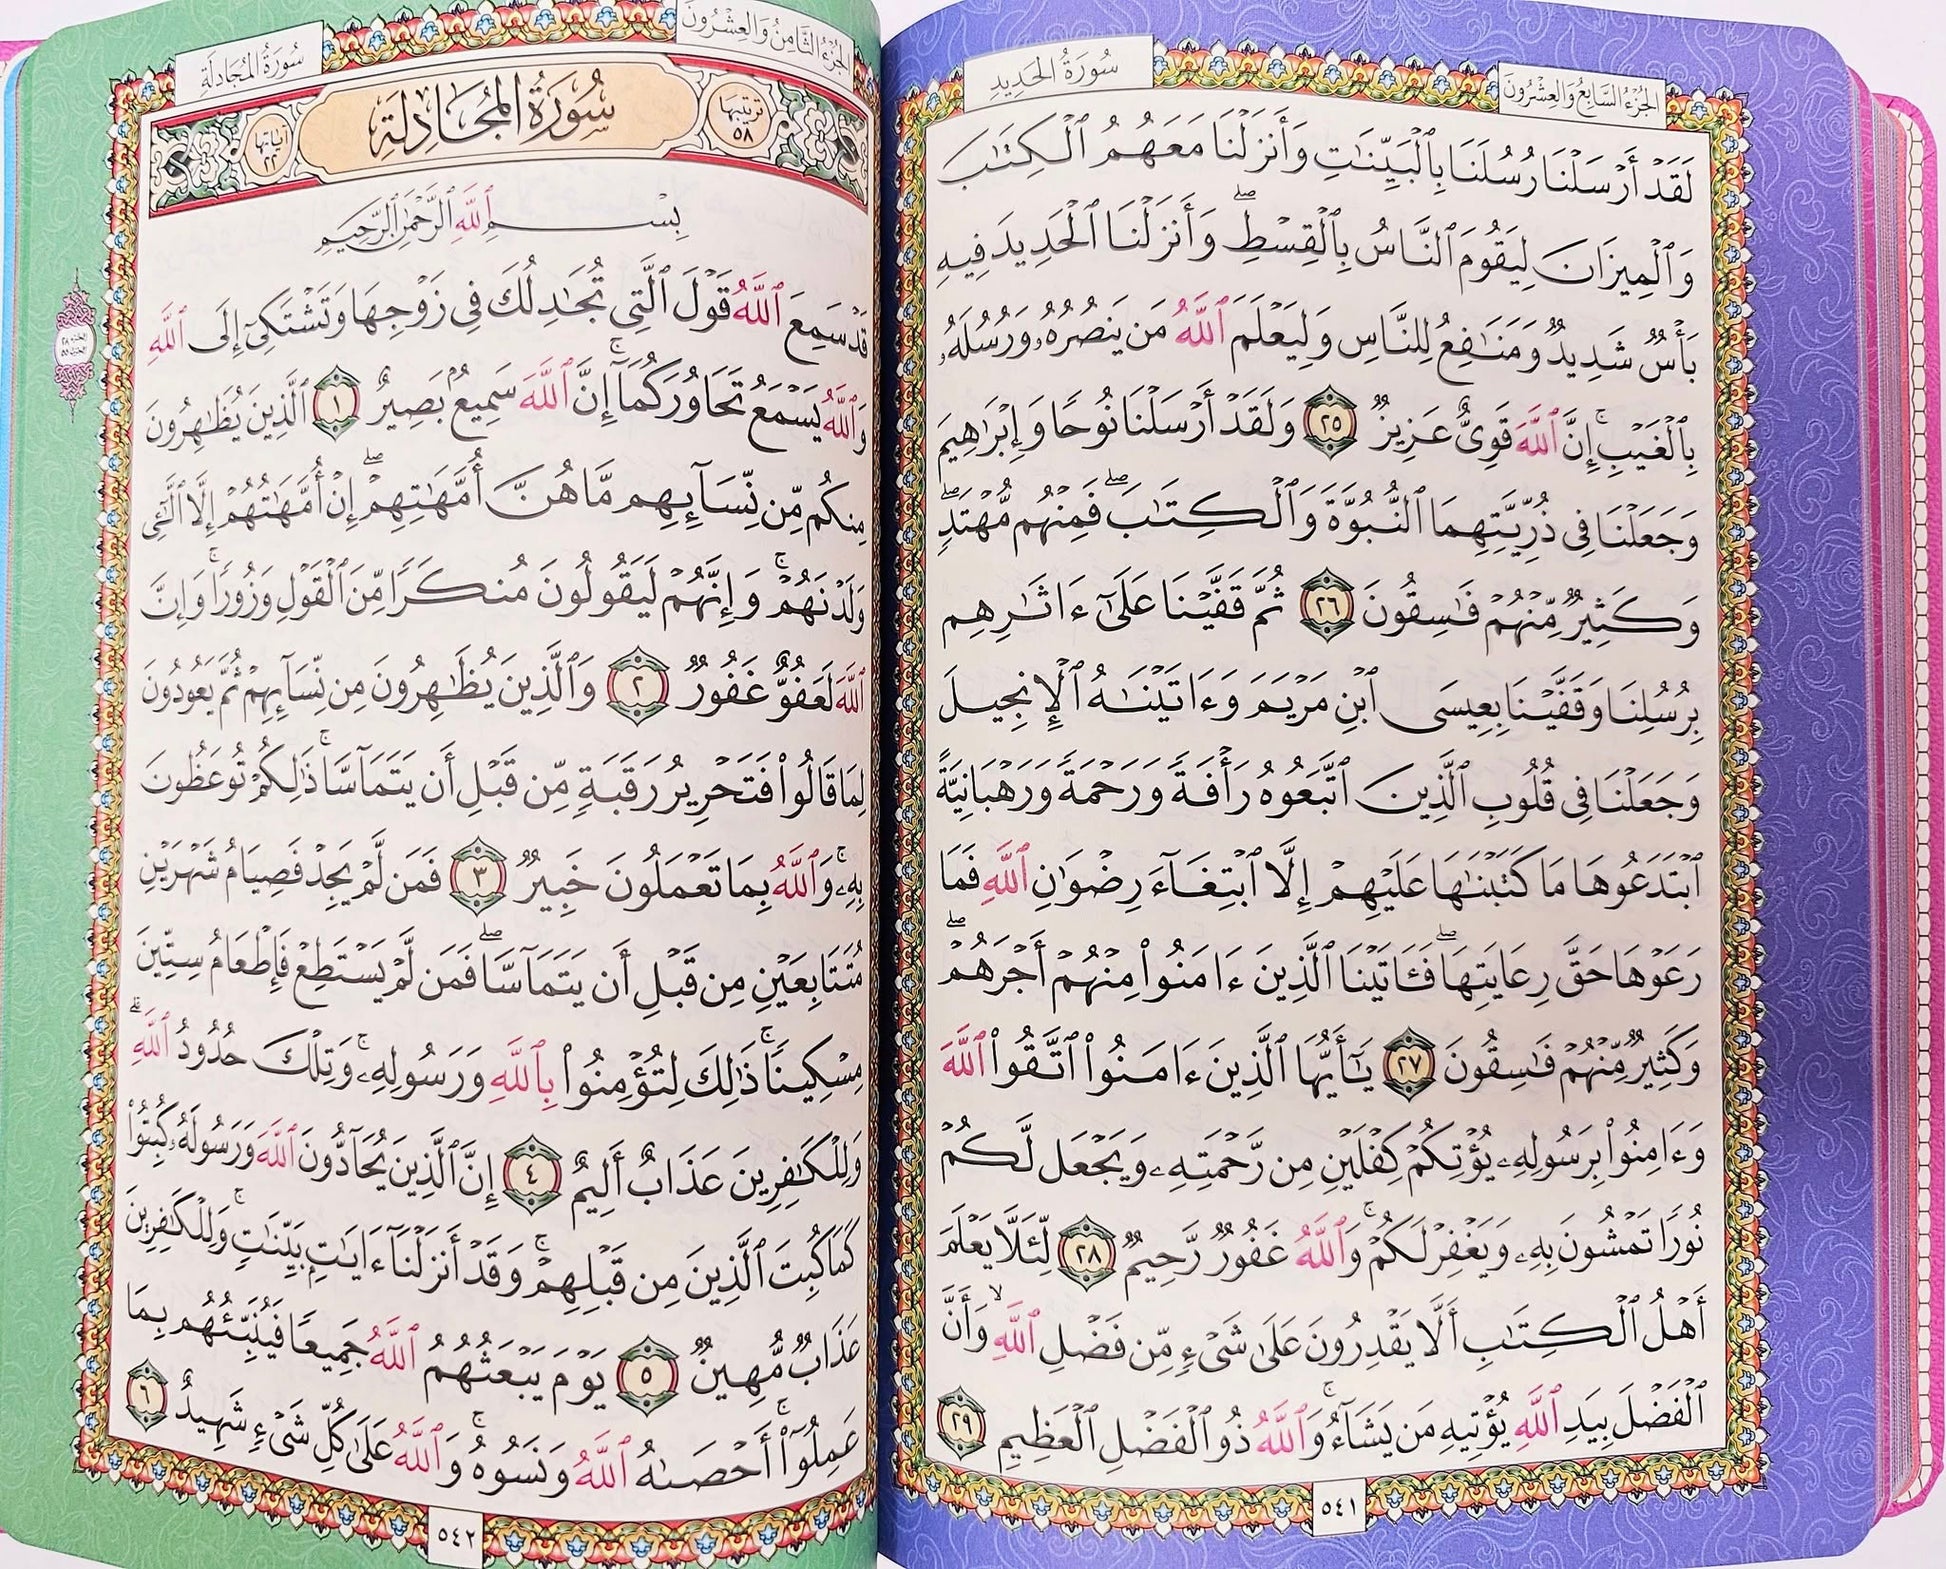 الجزء السابع والعشرون
سورة الحديد
لَقَدْ أَرْسَلْنَا رُسُلَنَا بِٱلْبَيِّنَٰتِ وَأَنزَلْنَا مَعَهُمُ ٱلْكِتَٰبَ
وَٱلْمِيزَانَ لِيَقُومَ ٱلنَّاسُ بِٱلْقِسْطِۖ وَأَنزَلْنَا ٱلْحَدِيدَ فِيهِ
بَأْسٌ شَدِيدٌ وَمَنَٰفِعُ لِلنَّاسِ وَلِيَعْلَمَ ٱللَّهُ مَن يَنصُرُهُۥ وَرُسُلَهُۥ
بِٱلْغَيْبِۚ إِنَّ ٱللَّهَ قَوِىٌّ عَزِيزٌ ٢٥ وَلَقَدْ أَرْسَلْنَا نُوحًا وَإِبْرَٰهِيمَ
وَجَعَلْنَا فِى ذُرِّيَّتِهِمَا ٱلنُّبُوَّةَ وَٱلْكِتَٰبَۖ فَمِنْهُم مُّهْتَدٍۖ
وَكَثِيرٌ مِّنْهُمْ فَٰسِقُونَ ٢٦ ثُمَّ قَفَّيْنَا عَلَىٰٓ ءَاثَٰرِهِم
بِرُسُلِنَا وَقَفَّيْنَا بِعِيسَى ٱبْنِ مَرْيَمَ وَءَاتَيْنَٰهُ ٱلْإِنجِيلَ
وَجَعَلْنَا فِى قُلُوبِ ٱلَّذِينَ ٱتَّبَعُوهُ رَأْفَةً وَرَحْمَةً وَرَهْبَانِيَّةً
ٱبْتَدَعُوهَا مَا كَتَبْنَٰهَا عَلَيْهِمْ إِلَّا ٱبْتِغَآءَ رِضْوَٰنِ ٱللَّهِ فَمَا
رَعَوْهَا حَقَّ رِعَايَتِهَاۖ فَـَٔاتَيْنَا ٱلَّذِينَ ءَامَنُوا۟ مِنْهُمْ أَجْرَهُمْۖ
وَكَثِيرٌ مِّنْهُمْ فَٰسِقُونَ ٢٧ يَٰٓأَيُّهَا ٱلَّذِينَ ءَامَنُوا۟ ٱتَّقُوا۟ ٱللَّهَ
وَءَامِنُوا۟ بِرَسُولِهِۦ يُؤْتِكُمْ كِفْلَيْنِ مِن رَّحْمَتِهِۦ وَيَجْعَل لَّكُمْ
نُورًا تَمْشُونَ بِهِۦ وَيَغْفِرْ لَكُمْۚ وَٱللَّهُ غَفُورٌ رَّحِيمٌ ٢٨ لِّئَلَّا يَعْلَمَ
أَهْلُ ٱلْكِتَٰبِ أَلَّا يَقْدِرُونَ عَلَىٰ شَىْءٍ مِّن فَضْلِ ٱللَّهِۙ وَأَنَّ
ٱلْفَضْلَ بِيَدِ ٱللَّهِ يُؤْتِيهِ مَن يَشَآءُۚ وَٱللَّهُ ذُو ٱلْفَضْلِ ٱلْعَظِيمِ ٢٩
٥٤١
الجزء الثامن والعشرون
سورة المجادلة
ترتيبها ٥٨
سُورَةُ المُجَادلَةِ
آياتها ٢٢
بِسْمِ ٱللَّهِ ٱلرَّحْمَٰنِ ٱلرَّحِيمِ
قَدْ سَمِعَ ٱللَّهُ قَوْلَ ٱلَّتِى تُجَٰدِلُكَ فِى زَوْجِهَا وَتَشْتَكِىٓ إِلَى ٱللَّهِ
وَٱللَّهُ يَسْمَعُ تَحَاوُرَكُمَآۚ إِنَّ ٱللَّهَ سَمِيعٌۢ بَصِيرٌ ١ ٱلَّذِينَ يُظَٰهِرُونَ
مِنكُم مِّن نِّسَآئِهِم مَّا هُنَّ أُمَّهَٰتِهِمْۖ إِنْ أُمَّهَٰتُهُمْ إِلَّا ٱلَّٰٓـِٔى
وَلَدْنَهُمْۚ وَإِنَّهُمْ لَيَقُولُونَ مُنكَرًا مِّنَ ٱلْقَوْلِ وَزُورًاۚ وَإِنَّ
ٱللَّهَ لَعَفُوٌّ غَفُورٌ ٢ وَٱلَّذِينَ يُظَٰهِرُونَ مِن نِّسَآئِهِمْ ثُمَّ يَعُودُونَ
لِمَا قَالُوا۟ فَتَحْرِيرُ رَقَبَةٍ مِّن قَبْلِ أَن يَتَمَآسَّاۚ ذَٰلِكُمْ تُوعَظُونَ
بِهِۦۚ وَٱللَّهُ بِمَا تَعْمَلُونَ خَبِيرٌ ٣ فَمَن لَّمْ يَجِدْ فَصِيَامُ شَهْرَيْنِ
مُتَتَابِعَيْنِ مِن قَبْلِ أَن يَتَمَآسَّاۖ فَمَن لَّمْ يَسْتَطِعْ فَإِطْعَامُ سِتِّينَ
مِسْكِينًاۚ ذَٰلِكَ لِتُؤْمِنُوا۟ بِٱللَّهِ وَرَسُولِهِۦۚ وَتِلْكَ حُدُودُ ٱللَّهِۗ
وَلِلْكَٰفِرِينَ عَذَابٌ أَلِيمٌ ٤ إِنَّ ٱلَّذِينَ يُحَآدُّونَ ٱللَّهَ وَرَسُولَهُۥ كُبِتُوا۟
كَمَا كُبِتَ ٱلَّذِينَ مِن قَبْلِهِمْۚ وَقَدْ أَنزَلْنَآ ءَايَٰتٍۭ بَيِّنَٰتٍۚ وَلِلْكَٰفِرِينَ
عَذَابٌ مُّهِينٌ ٥ يَوْمَ يَبْعَثُهُمُ ٱللَّهُ جَمِيعًا فَيُنَبِّئُهُم بِمَا
عَمِلُوٓا۟ۚ أَحْصَىٰهُ ٱللَّهُ وَنَسُوهُۚ وَٱللَّهُ عَلَىٰ كُلِّ شَىْءٍ شَهِيدٌ ٦
٥٤٢
الجزء ٢٨
الحزب ٥٥